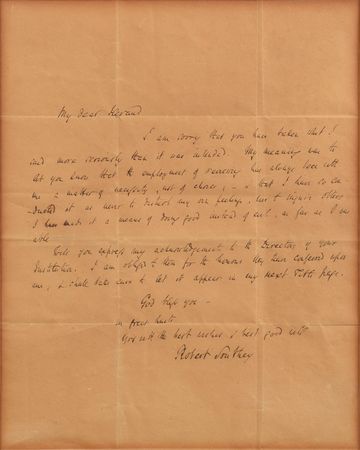 My dear Heraud
I am sorry that you have taken what I
said more seriously than it was intended. My meaning was to
let you know that the employment of reviewing has always been with
me a matter of necessity, not of choice, – & that I have so con
ducted it as never to disturb my own feelings, nor to injure others
I have made it a means of doing good instead of evil, as far as I am
able
Will you express my acknowledgement to the Directors of your
Institution. I am obliged to them for the honour they have conferred upon
me, & shall take care to let it appear in my next Title page.
God bless you –
in great haste
Yrs with the best wishes & best good will
Robert Southey